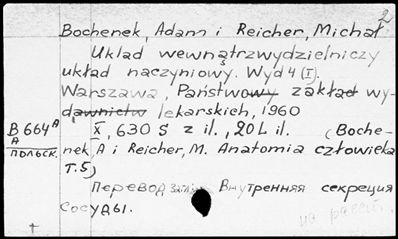 2
Bochenek, Adam i Reicher, Michał
Układ wewnątrzwydzielniczy
układ naczyniowy. Wyd 4 (I).
Warszawa, Państwowy zakład wy-
dawnictw lekarskich, 1960
B 664 A X, 630 S z il., 20 L il. (Boche-
A
ПОЛЬСК. nek, A i Reicher, M. Anatomia człowieka
T.5)
Перевод загл. Внутренняя секреция
сосуды.